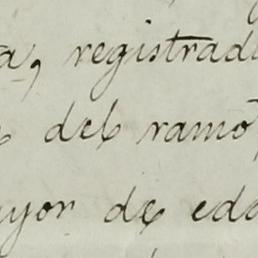 a, registrada
del ramo,
ayor de eda